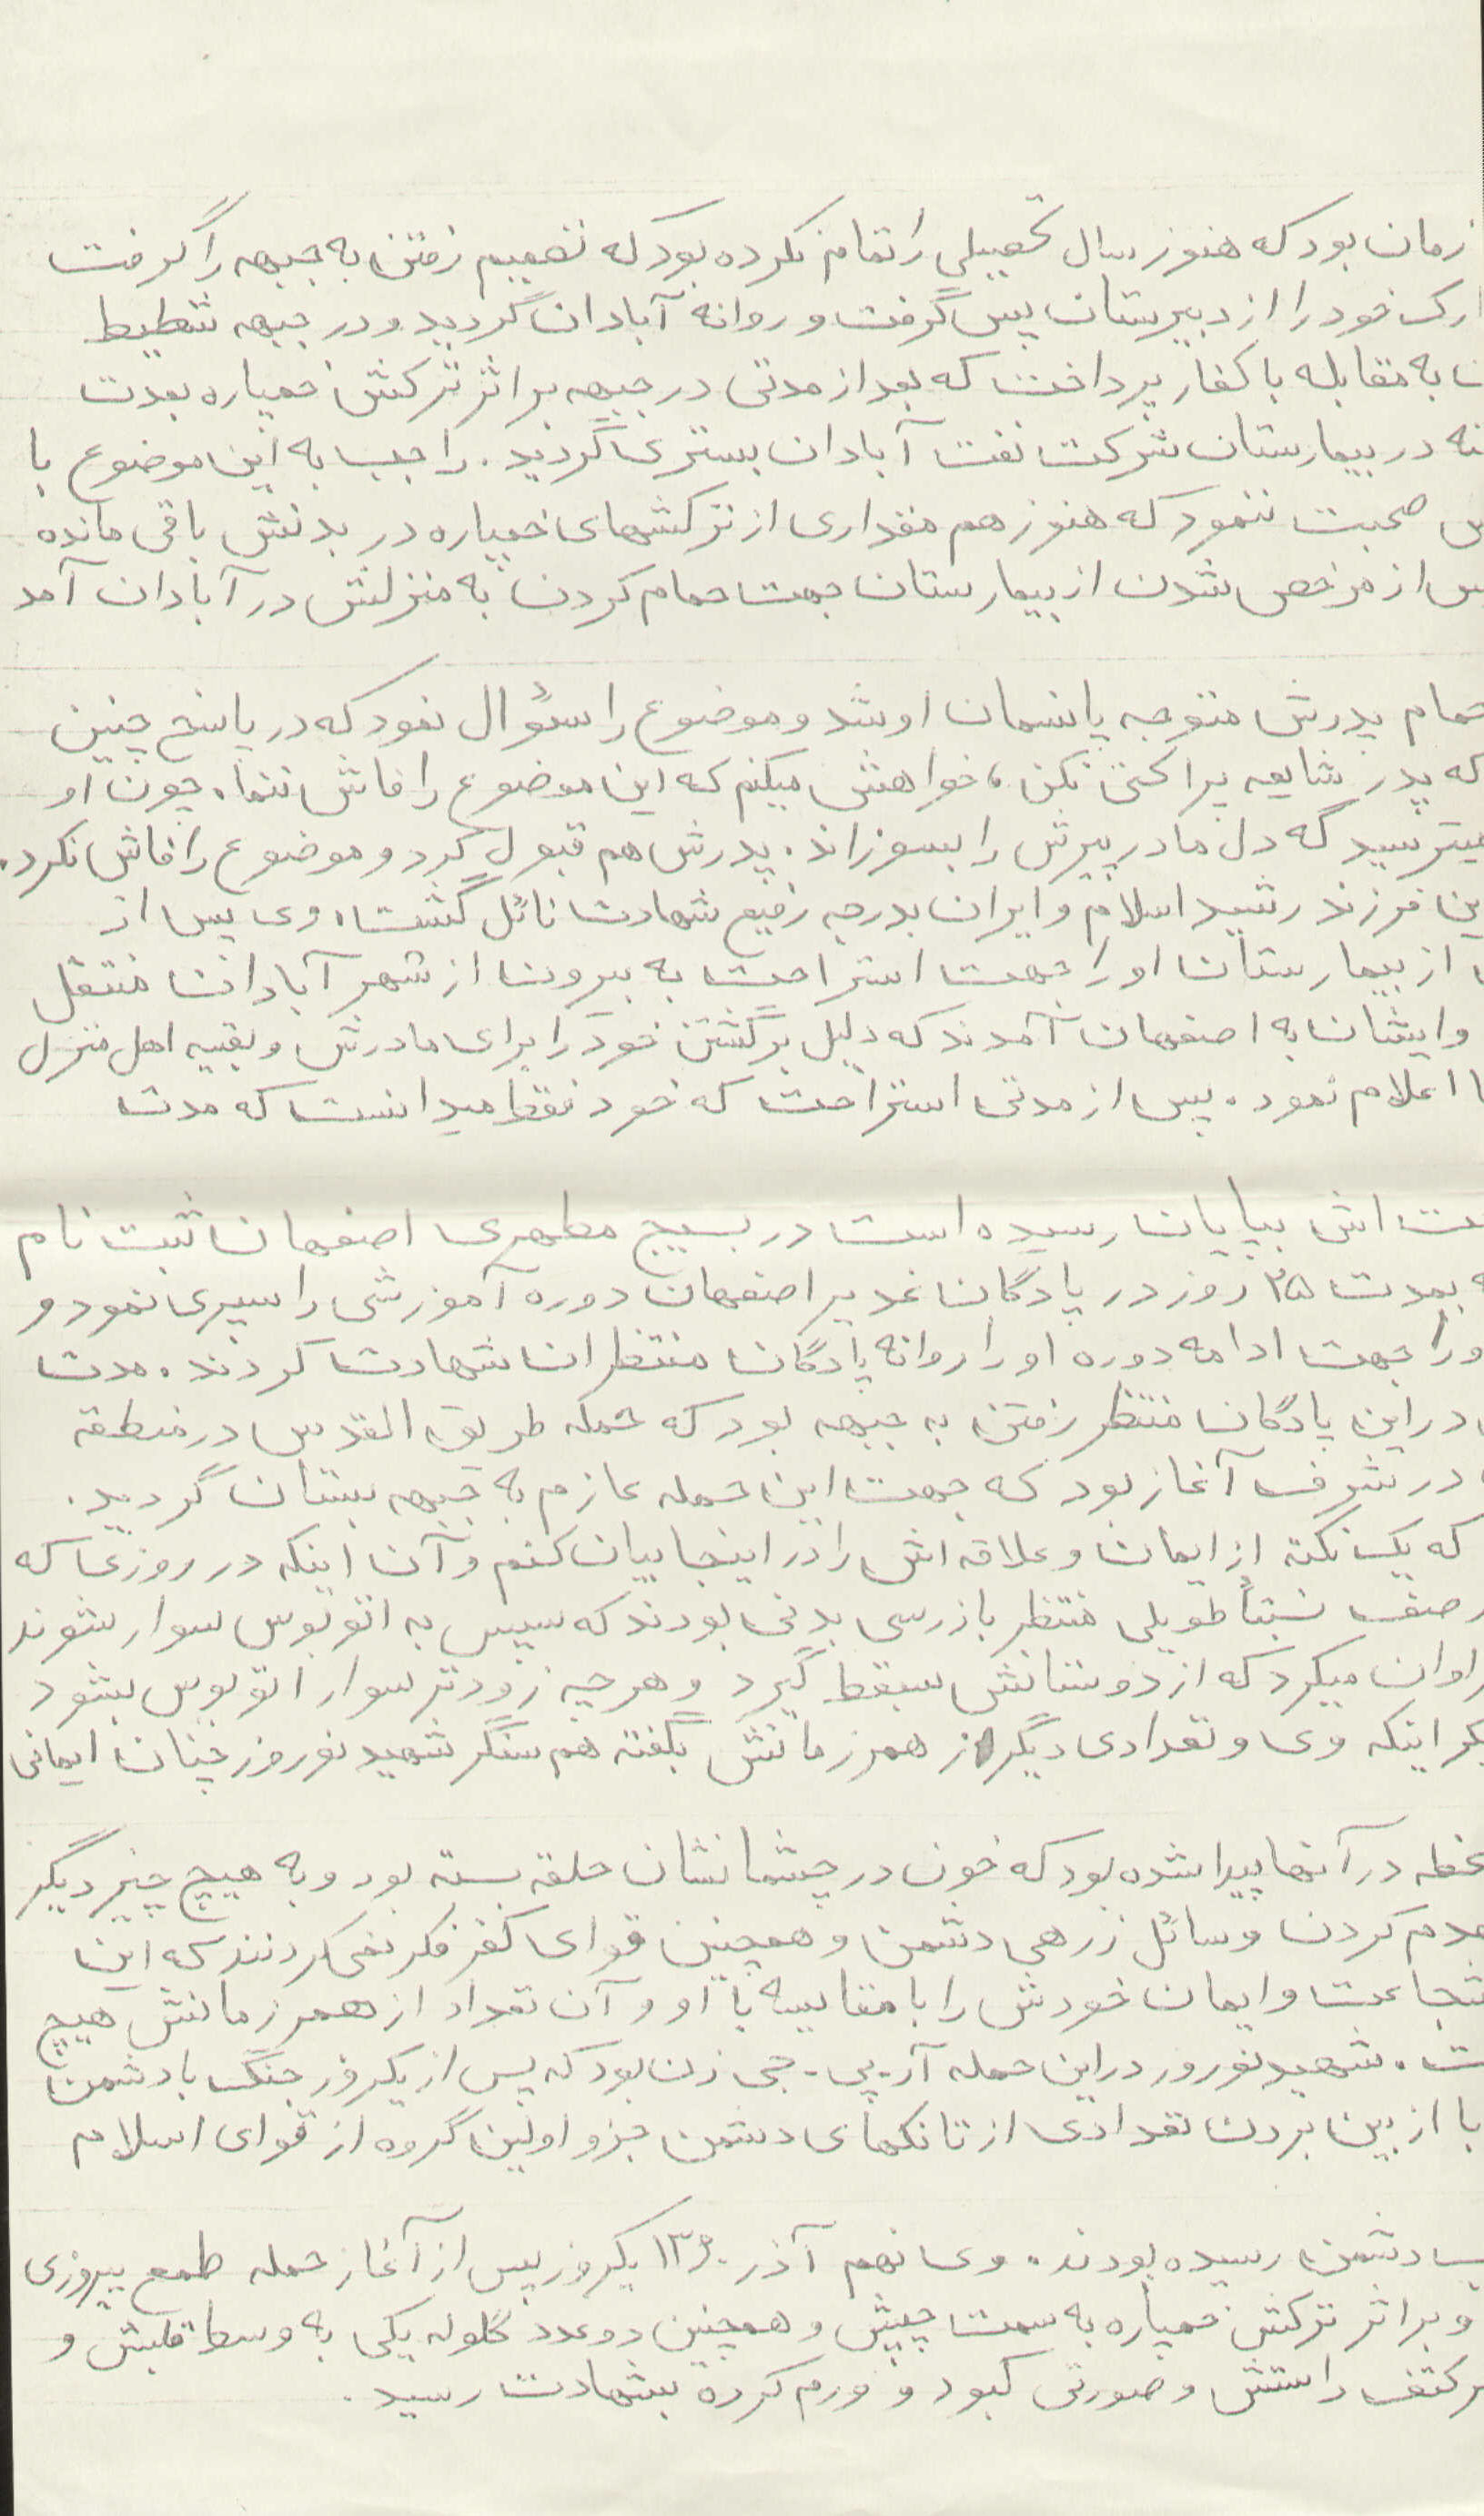 زمان بود که هنوز سال تحصیلی را تمام نکرده بود که تصمیم رفتن به جبهه را گرفت
ارک خود را از دبیرستان پس گرفت و روانه آبادان گردید و در جبهه شطیط
به مقابله با کفار پرداخت که بعد از مدتی در جبهه بر اثر ترکش خمپاره بمدت
در بیمارستان شرکت نفت آبادان بستری گردید. راجب به این موضوع با
صحبت ننمود که هنوز هم مقداری از ترکشهای خمپاره در بدنش باقی مانده
از مرخص شدن از بیمارستان جهت حمام کردن به منزلش در آبادان آمد
حمام پدرش متوجه پانسمان او شد و موضوع را سئوال نمود که در پاسخ چنین
که پدر شایعه پراکنی نکن، خواهش میکنم که این موضوع را فاش ننما. چون او
میترسید که دل مادر پیرش را بسوزاند. پدرش هم قبول کرد و موضوع را فاش نکرد.
ین فرزند رشید اسلام و ایران بدرجه رفیع شهادت نائل گشت. وی پس از
از بیمارستان او را جهت استراحت به بیرون از شهر آبادان منتقل
وایشان به اصفهان آمدند که دلیل برگشتن خود را برای مادرش و بقیه اهل منزل
اعلام نمود. پس از مدتی استراحت که خود فقط میدانست که مدت
ت اش بپایان رسیده است در بسیج مطهری اصفهان ثبت نام
بمدت ۲۵ روز در پادگان غدیر اصفهان دوره آموزشی را سپری نمود و
ورا جهت ادامه دوره او را روانه پادگان منتظران شهادت کردند. مدت
در این پادگان منتظر رفتن به جبهه بود که حمله طریق القدس در منطقه
در شرف آغاز بود که جهت این حمله عازم به جبهه بستان گردید.
که یک نکته از ایمان و علاقه اش را در اینجا بیان کنم و آن اینکه در روزی که
صف نسبتاً طویلی منتظر بازرسی بدنی بودند که سپس به اتوبوس سوار شوند
راوان میکرد که از دوستانش سبقط گیرد و هر چه زودتر سوار اتوبوس بشود
اینکه وی و تعدادی دیگر از همرزمانش بگفته هم سنگر شهید نوروز چنان ایمانی
حظه در آنها پیدا شده بود که خون در چشمانشان حلقه بسته بود و به هیچ چیز دیگر
هدم کردن وسائل زرهی دشمن و همچنین قوای کفر فکر نمی کردند که این
شجاعت و ایمان خودش را با مقایسه با او و آن تعداد از همرزمانش هیچ
ت. شهید نوروز در این حمله آر-پی-جی زن بود که پس از یکروز جنگ با دشمن
با از بین بردن تعدادی از تانکهای دشمن جزو اولین گروه از قوای اسلام
دشمن رسیده بودند. وی نهم آذر ۱۳۶۰ یکروز پس از آغاز حمله طمع پیروزی
و بر اثر ترکش خمپاره به سمت چپش و همچنین دو عدد گلوله یکی به وسط قلبش و
ر کتف راستش و صورتی کبود و ورم کرده بشهادت رسید.